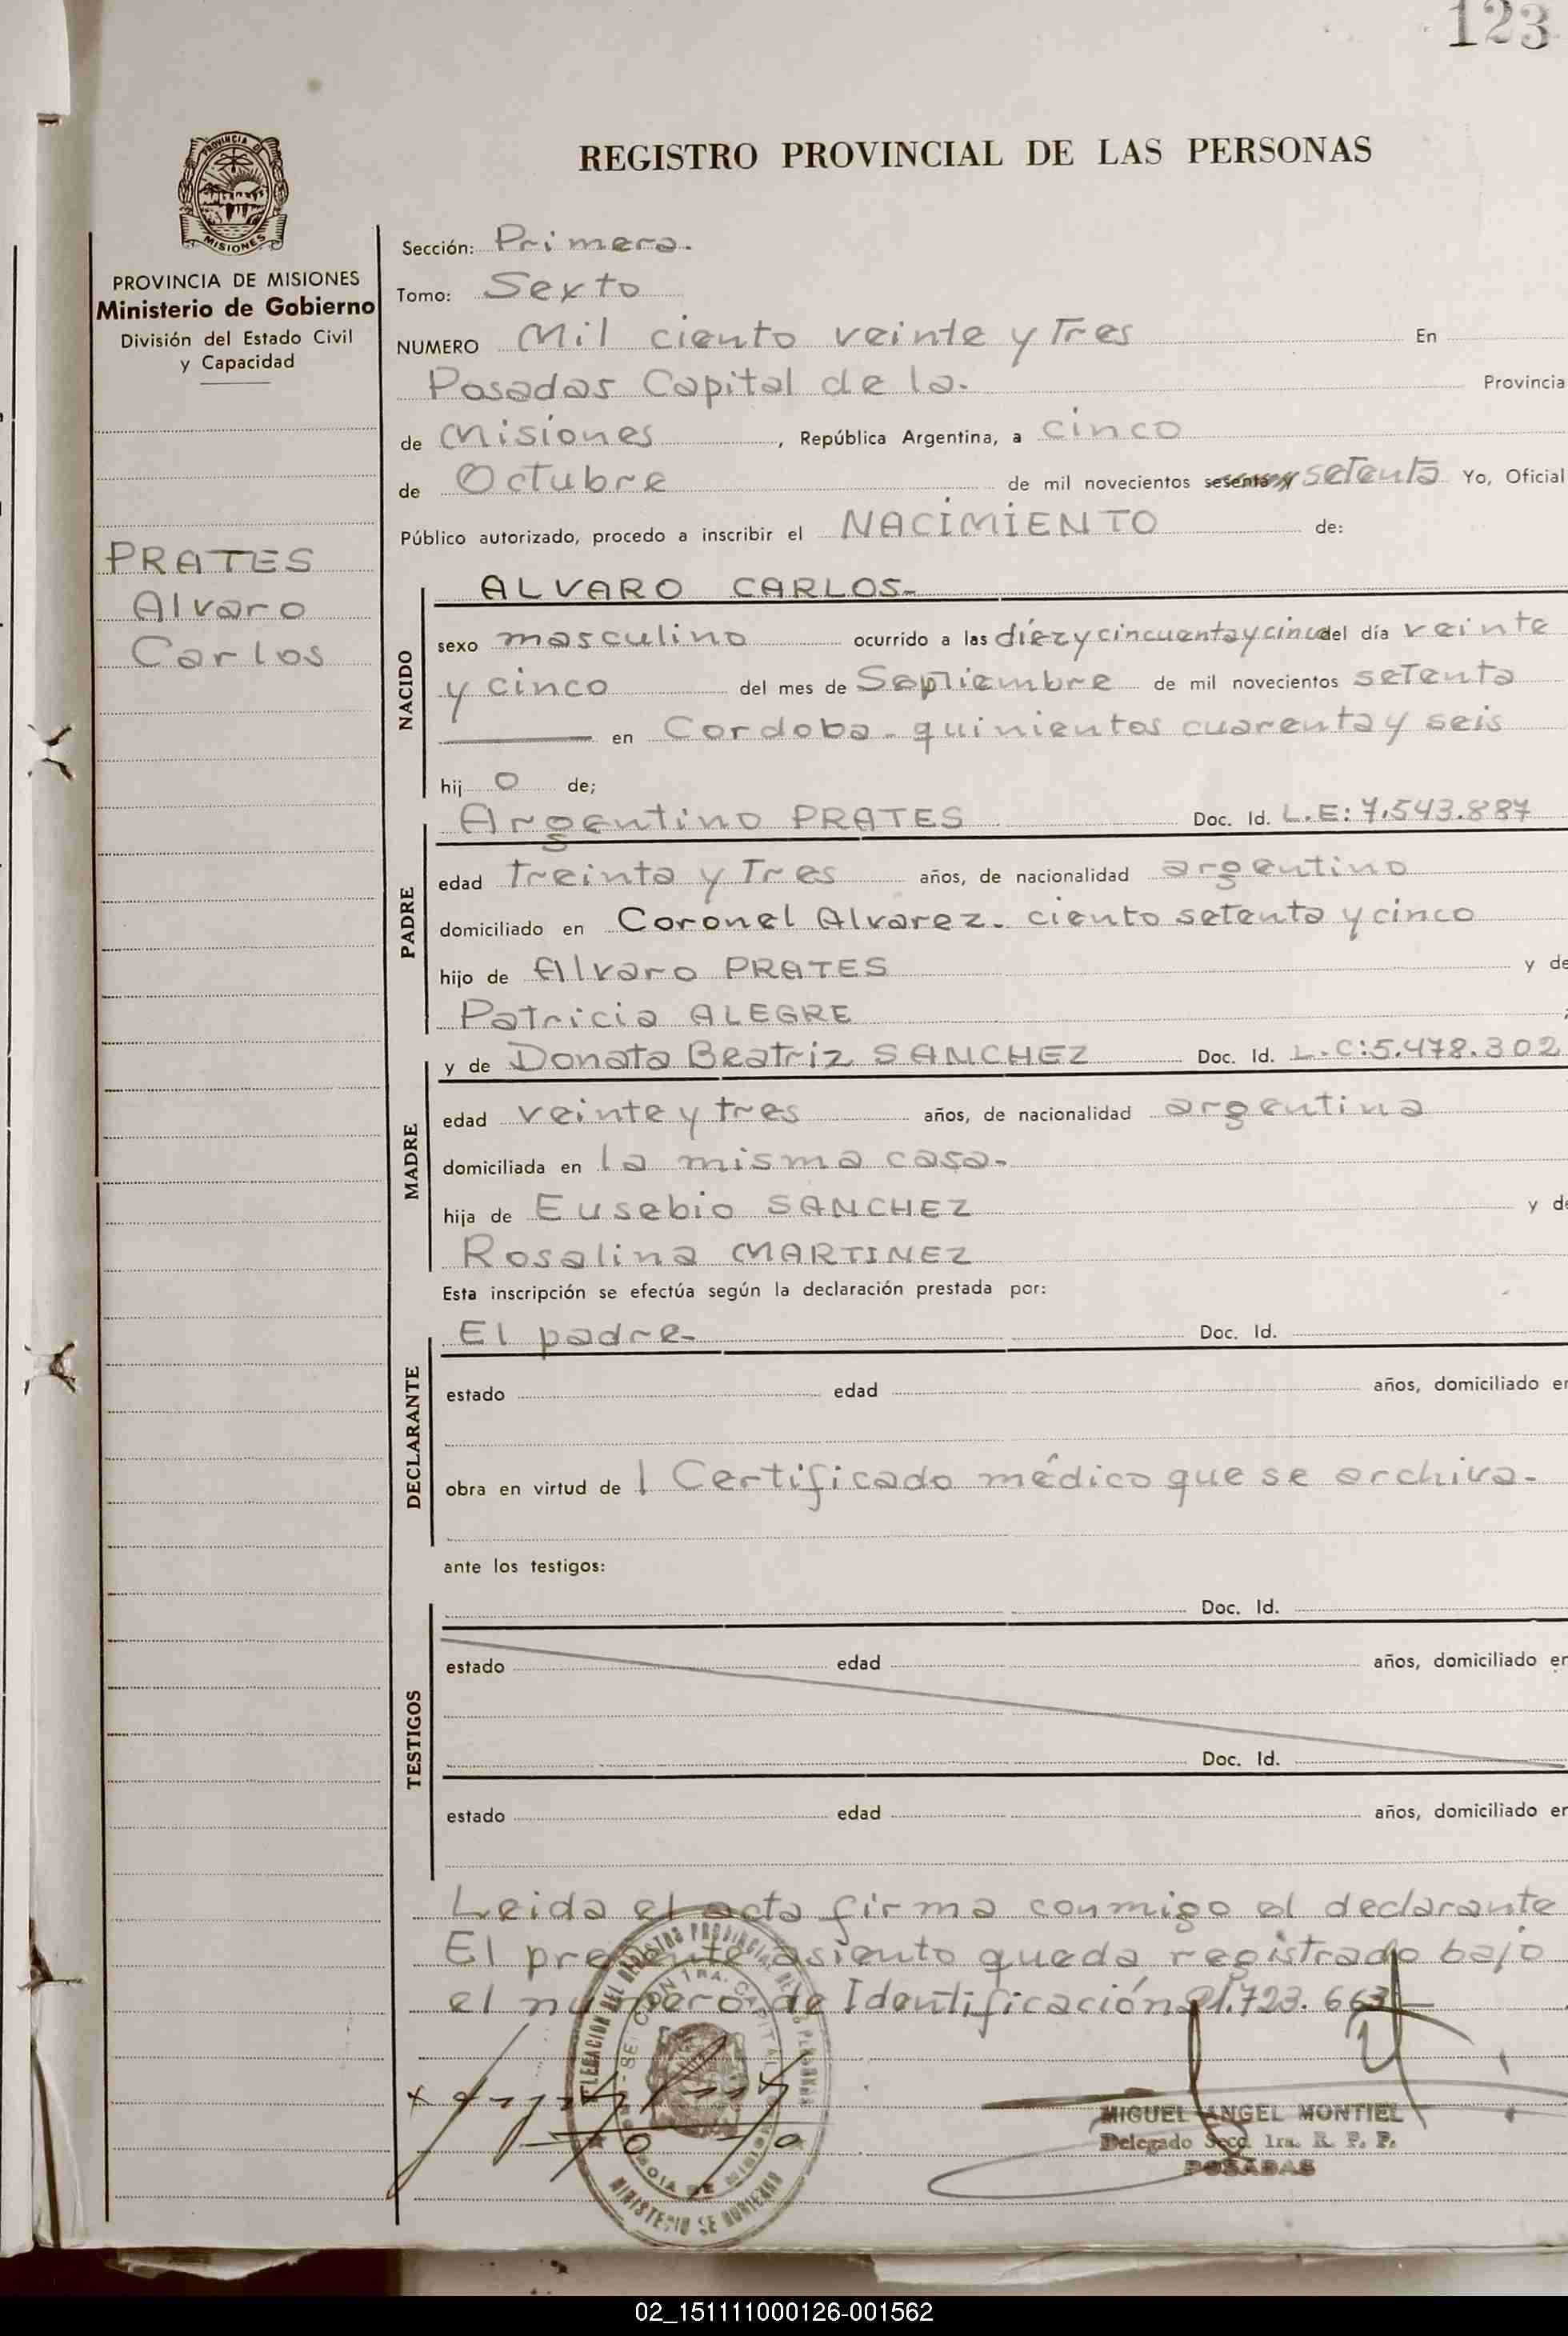 123
PROVINCIA DE
MISIONES
PROVINCIA DE MISIONES
Ministerio de Gobierno
División del Estado Civil
y Capacidad
PRATES
Alvaro
Carlos
REGISTRO PROVINCIAL DE LAS PERSONAS
Sección: Primera.
Tomo: Sexto
NUMERO Mil ciento veinte y Tres En
Posadas Capital de la. Provincia
de Misiones, República Argentina, a cinco
de Octubre de mil novecientos sesenta y setenta Yo, Oficial
Público autorizado, procedo a inscribir el NACIMIENTO de:
NACIDO
ALVARO CARLOS-
sexo masculino ocurrido a las diez y cincuenta y cinco del día veinte
y cinco del mes de Septiembre de mil novecientos setenta
en Cordoba - quinientos cuarenta y seis
hij o de;
PADRE
Argentino PRATES Doc. Id. L.E: 7.543.887
edad treinta y Tres años, de nacionalidad argentino
domiciliado en Coronel Alvarez - ciento setenta y cinco
hijo de Alvaro PRATES y de
Patricia ALEGRE
MADRE
y de Donata Beatriz SANCHEZ Doc. Id. L.C: 5.478.302
edad veinte y tres años, de nacionalidad argentina
domiciliada en la misma casa-
hija de Eusebio SANCHEZ y de
Rosalina MARTINEZ
Esta inscripción se efectúa según la declaración prestada por:
DECLARANTE
El padre- Doc. Id.
estado edad años, domiciliado en
obra en virtud de l Certificado médico que se archiva-
ante los testigos:
TESTIGOS
Doc. Id.
estado edad años, domiciliado en
Doc. Id.
estado edad años, domiciliado en
Leida el acta firma conmigo el declarante
El presente asiento queda registrado bajo
el numero de Identificación 21.723.663
MIGUEL ANGEL MONTIEL
Delegado Secc. 1ra. R. P. P.
POSADAS
02_151111000126-001562